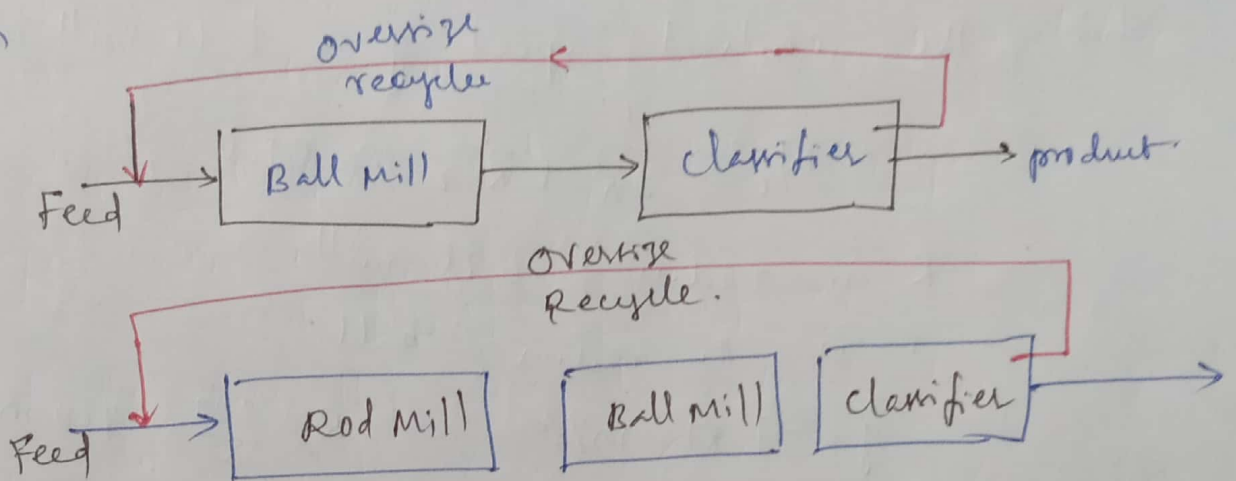 oversize
recycle
Ball Mill
Classifier
product.
Feed
Oversize
Recycle.
Rod Mill
Ball Mill
Classifier
Feed